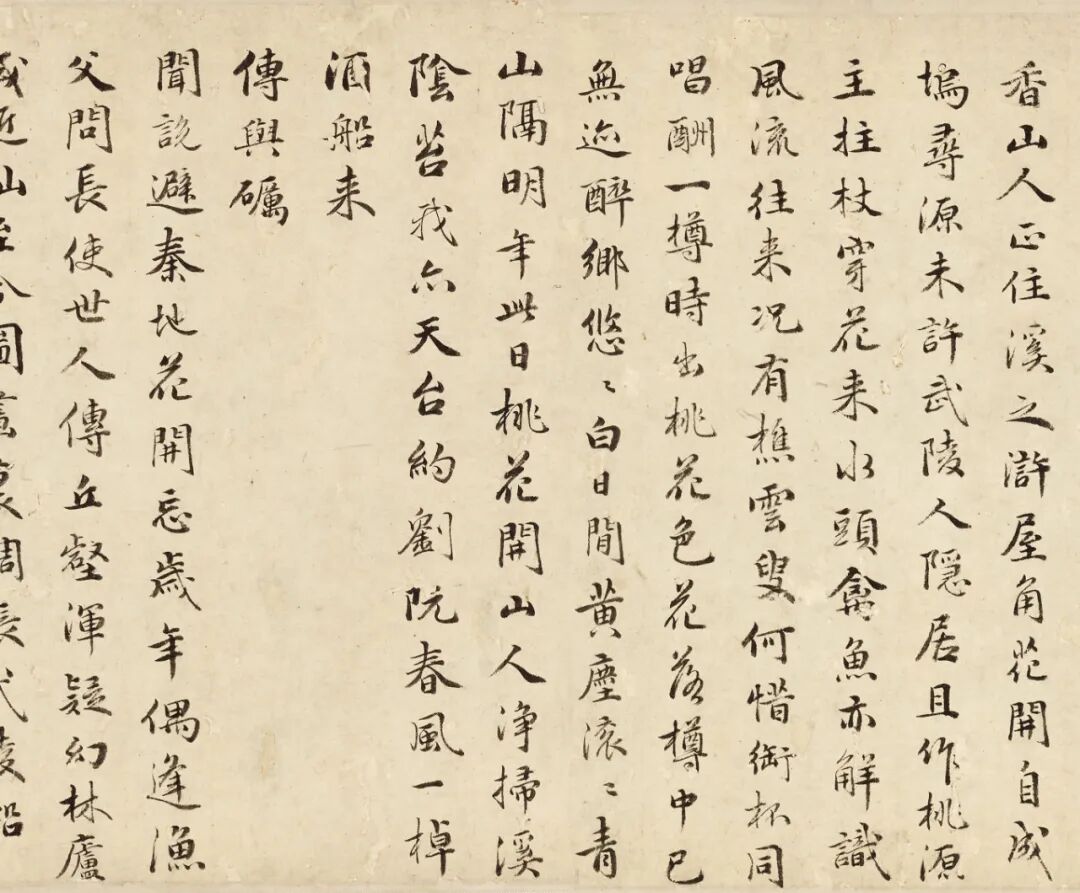 香山人正住溪之滸屋角花開自成
塢尋源未許武陵人隱居且作桃源
主拄杖穿花来水頭禽魚亦解識
風流往来况有樵雲叟何惜銜杯同
唱酬一樽時出桃花色花落樽中已
無迹醉鄉悠〻白日閒黄塵滚〻青
山隔明年此日桃花開山人浄掃溪
陰苔我亦天台約劉阮春風一棹
酒船来
傳與礪
聞說避秦地花開忘歲年偶逢漁
父問長使世人傳丘壑渾疑幻林廬
咸近山至今圖畫裏